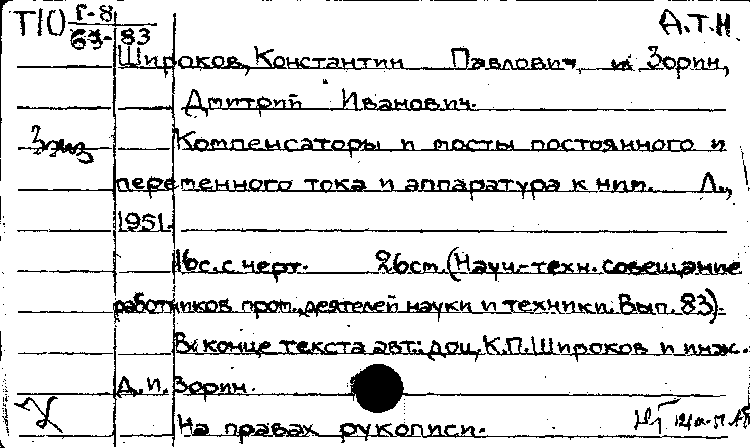 Т10 Г-8 А.Т.Н.
83
Широков, Константин Павлович, и Зорин,
Дмитрий Иванович.
3 экз Компенсаторы и мосты постоянного и
переменного тока и аппаратура к ним. Л.,
1951.
16с. с черт. 26см. (Науч.-техн. совещание
работников пром., деятелей науки и техники. Вып. 83).
В конце текста авт.: доц. К.П. Широков и инж.
Д.И. Зорин.
На правах рукописи.